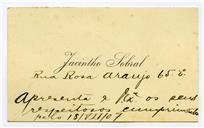 Jacintho Sobral
Rua Rosa Araujo 65
Apresenta a os seus
respeitosos cumprimentos
pelo